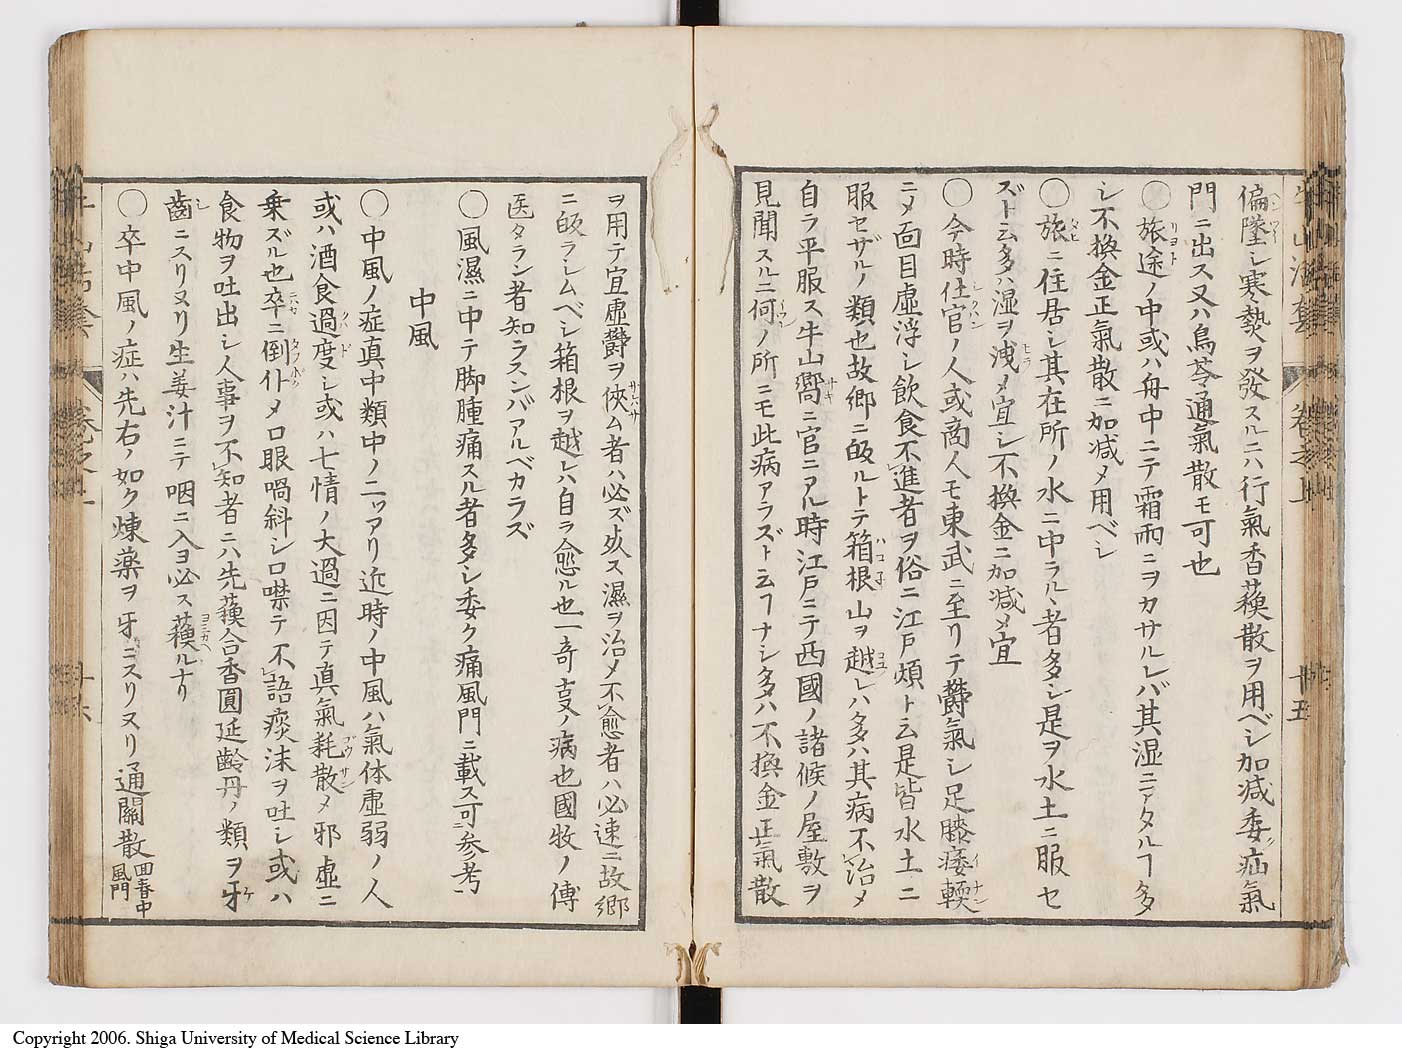 偏墜シ寒熱ヲ發スルニハ行氣香蘓散ヲ用ベシ加減委疝氣
門ニ出ス又ハ烏苓通氣散モ可也
○旅途ノ中或ハ舟中ニテ霜雨ニヲカサルレバ其湿ニアタルヿ多
シ不換金正氣散ニ加減メ用ベシ
○旅ニ住居シ其在所ノ水ニ中ラルヽ者多シ是ヲ水土ニ服セ
ズト云多ハ湿ヲ洩メ宜シ不換金ニ加減メ宜
○今時仕官ノ人或商人モ東武ニ至リテ欝氣シ足膝痿軟
ニメ面目虚浮シ飲食不進者ヲ俗ニ江戸煩ト云是皆水土ニ
服セザルノ類也故郷ニ皈ルトテ箱根山ヲ越レハ多ハ其病不治メ
自ラ平服ス牛山嚮ニ官ニアル時江戸ニテ西國ノ諸候ノ屋敷ヲ
見聞スルニ何ノ所ニモ此病アラズト云フヿナシ多ハ不換金正氣散
牛山活套 卷之上 十五
ヲ用テ宜虚欝ヲ俠ム者ハ必ズ攻ス濕ヲ治メ不愈者ハ必速ニ故郷
ニ皈ラシムベシ箱根ヲ越レハ自ラ愈ル也一奇㕝ノ病也國牧ノ傳
医タラン者知ラスンバアルベカラズ
○風濕ニ中テ脚腫痛スル者多シ委ク痛風門ニ載ス可参考
中風
○中風ノ症真中類中ノ二ツアリ近時ノ中風ハ氣体虚弱ノ人
或ハ酒食過度シ或ハ七情ノ大過ニ因テ真氣耗散メ邪虚ニ
乗ズル也卒ニ倒仆メ口眼喎斜シ口噤テ不語痰沫ヲ吐シ或ハ
食物ヲ吐出シ人事ヲ不知者ニハ先蘓合香圓延齡丹ノ類ヲ牙
齒ニスリヌリ生姜汁ニテ咽ニ入ヨ必ス蘓ルナリ
○卒中風ノ症ハ先右ノ如ク煉薬ヲ牙ニスリヌリ通關散回春中風門